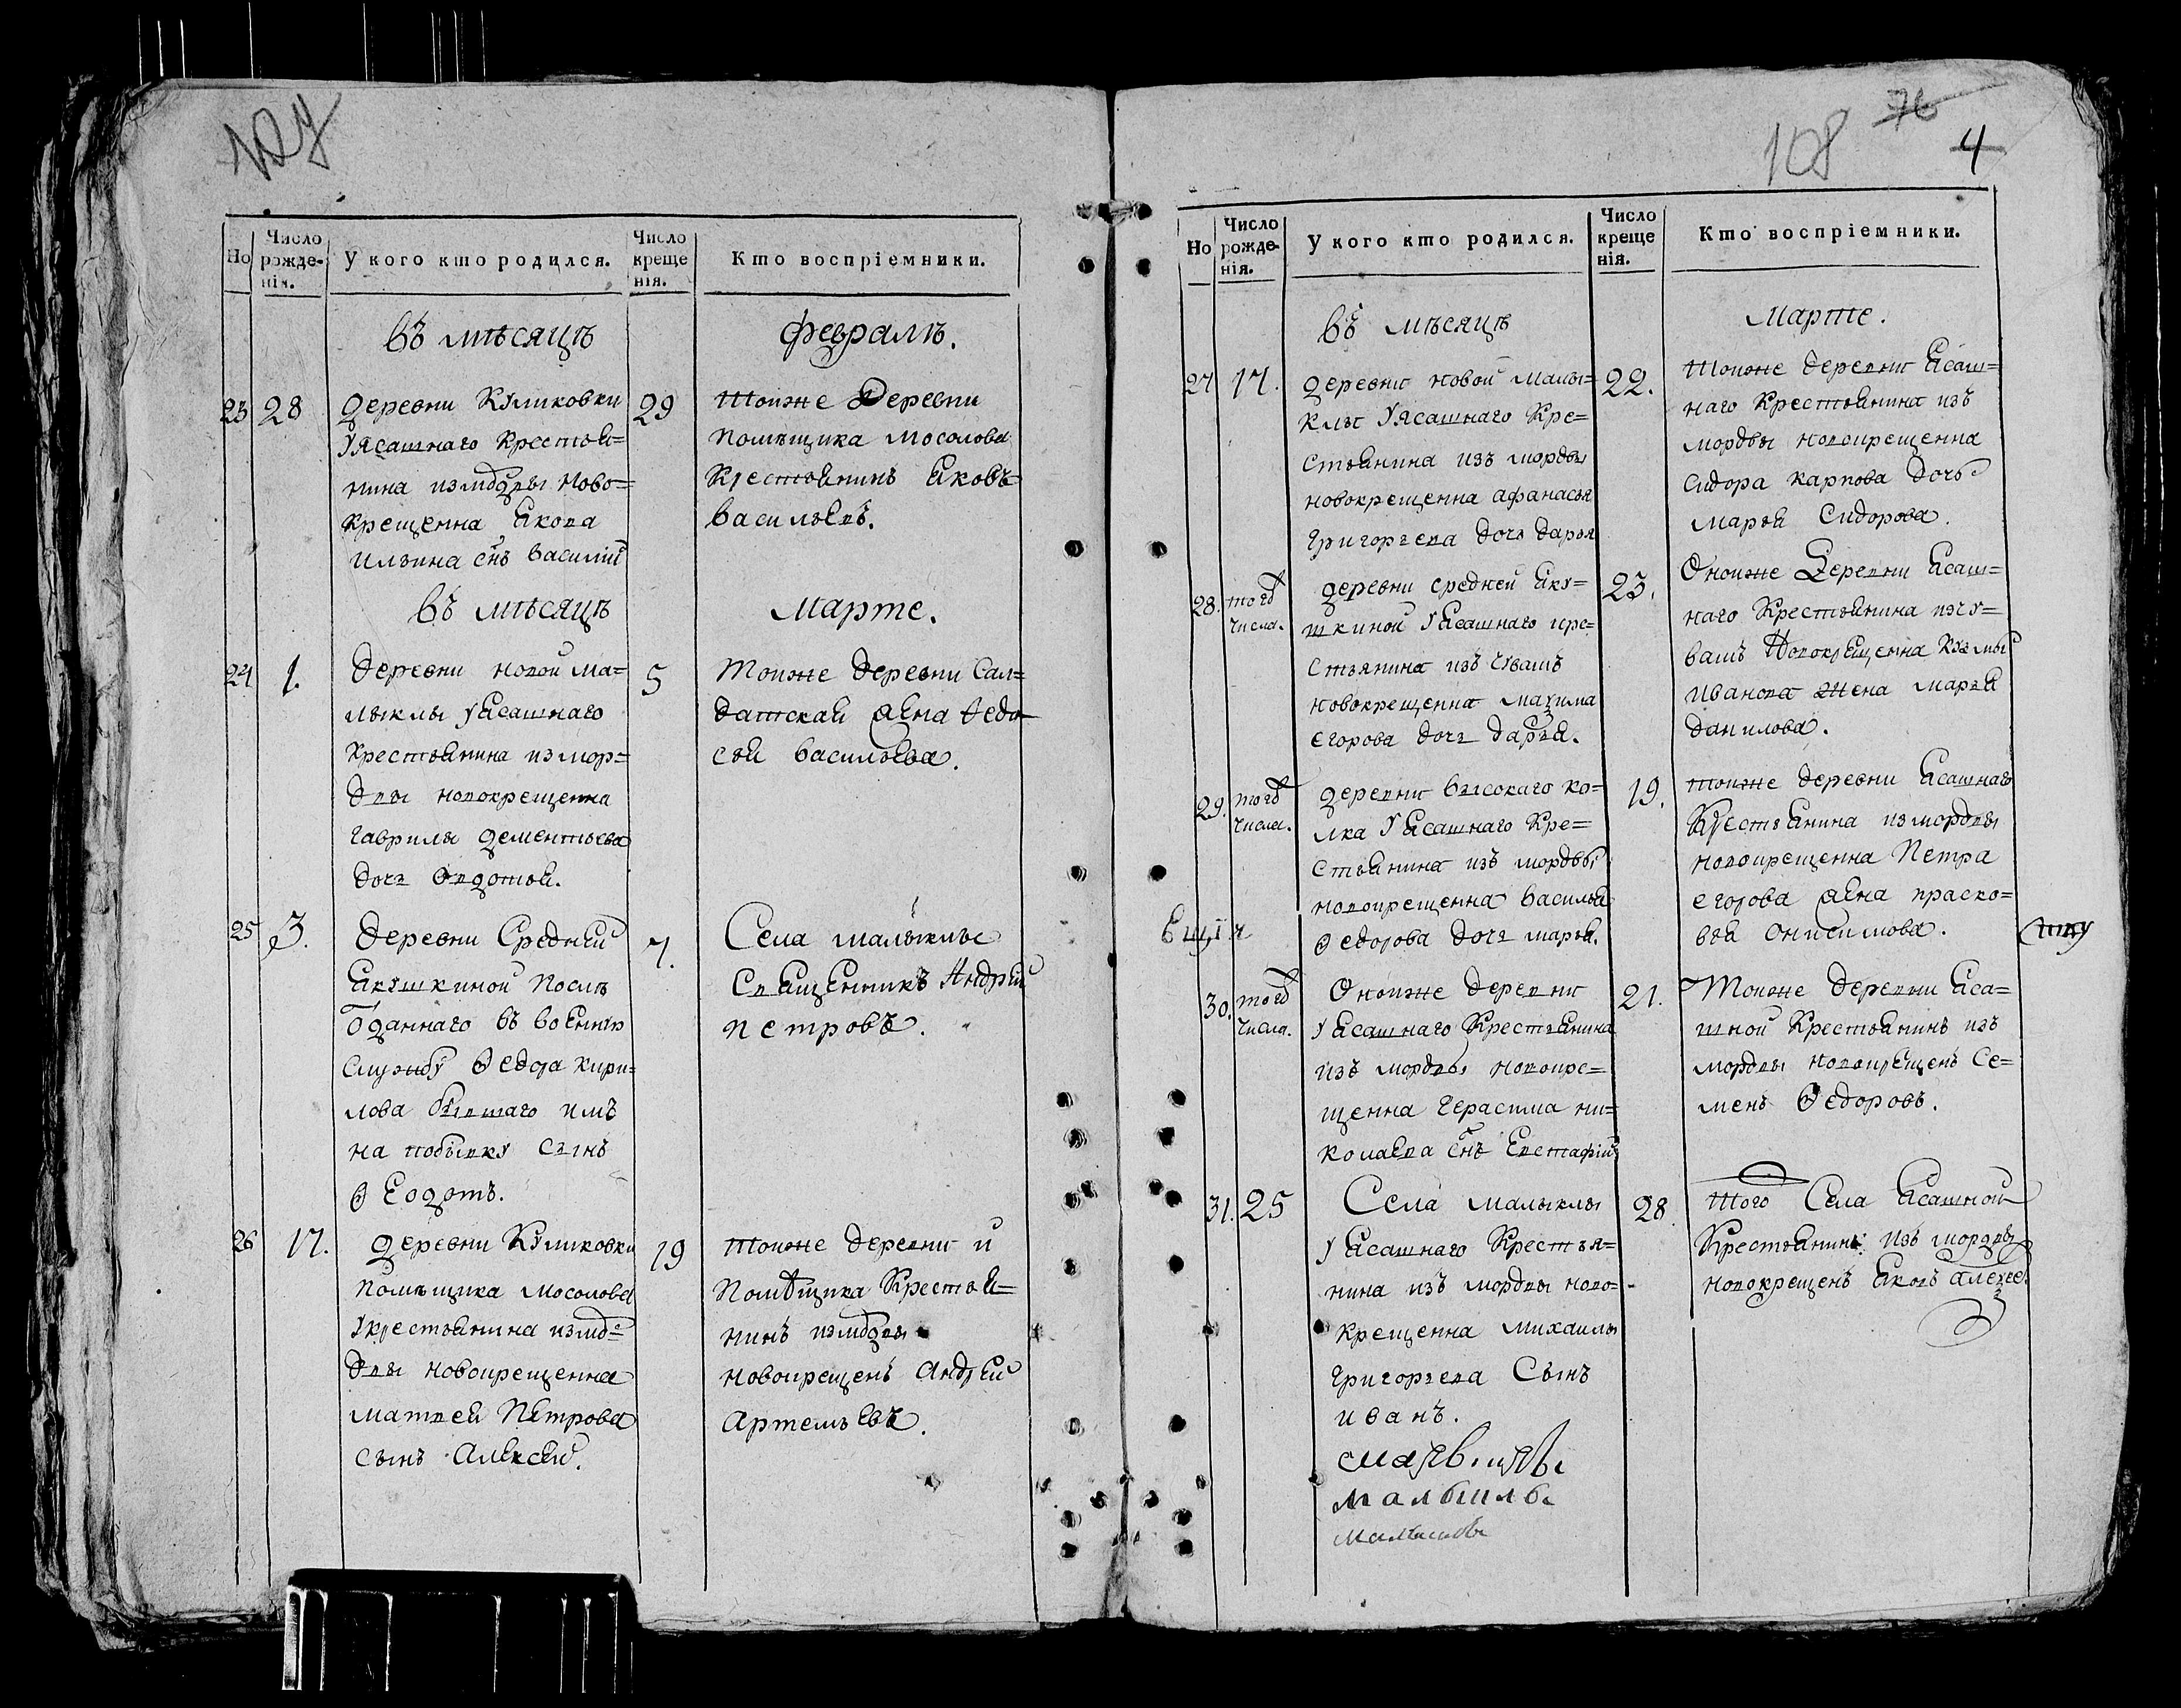 107
Но
Число рожде-нія.
У кого кто родился.
Число креще нія.
Кто воспріемники.
въ мѣсяцѣ
февралѣ.
23
28
деревни Куликовки
у ясашнаго крестья=
нина измордвы ново=
крещенна якова
ильина снъ василій
29
тойже деревни
помѣщика мосолова
крестьянинъ яковъ
васильевъ.
въ мѣсяцѣ
марте.
24
1.
деревни новой ма=
лыклы у ясашнаго
крестьянина измор=
двы новокрещенна
гаврилы дементьева
дочь овдотья.
5
тойже деревни сал=
датская жена федо
сья васильева.
25
3.
деревни средней
якушкиной послѣ
отданнаго въ военную
службу федора кири=
лова бывшаго имъ
на побывку сынъ
феодотъ.
7.
села малыклы
священникъ андрей
петровъ.
26
17.
деревни Куликовки
помѣщика мосолова
у крестьянина измор=
двы новокрещенна
матвея петрова
сынъ алексей.
19
тойже деревни и
помѣщика крестья=
нинъ измордвы
новокрещенъ андрей
артемьевъ.
108
76
4
Но
Число рожде-нія.
У кого кто родился.
Число креще нія.
Кто воспріемники.
въ мѣсяцѣ
марте.
27
17.
деревни новой малы=
клы у ясашнаго кре=
стьянина изъ мордвы
новокрещенна афанасья
григорьева дочь дарья
22.
тойже деревни ясаш=
наго крестьянина изъ
мордвы новокрещенна
сидора карпова дочь
марья сидорова.
28.
того числа.
деревни средней яку=
шкиной у ясашнаго кре=
стьянина изъ чувашъ
новокрещенна максима
егорова дочь дарья.
23.
онойже деревни ясаш=
наго крестьянина изчу=
вашъ новокрещенна кузмы
иванова жена марья
данилова.
29.
того числа.
деревни высокаго ко=
лка у ясашнаго кре=
стьянина изъ мордвы
новокрещенна василья
федорова дочь марья.
19.
тойже деревни ясашнаго
крестьянина измордвы
новокрещенна петра
егорова жена праско=
вья онисимова.
30.
того числа.
онойже деревни
у ясашнаго крестьянина
изъ мордвы новокре=
щенна герасима ни=
колаева снъ евстафій
21.
тойже деревни яса=
шной крестьянинъ изъ
мордвы новокрещенъ се=
менъ федоровъ.
31.
25
села малыклы
у ясашнаго крестья=
нина изъ мордвы ново=
крещенна михаилы
григорьева сынъ
иванъ.
28.
того села ясашной
крестьянинъ изъ мордвы
новокрещенъ яковъ алексее